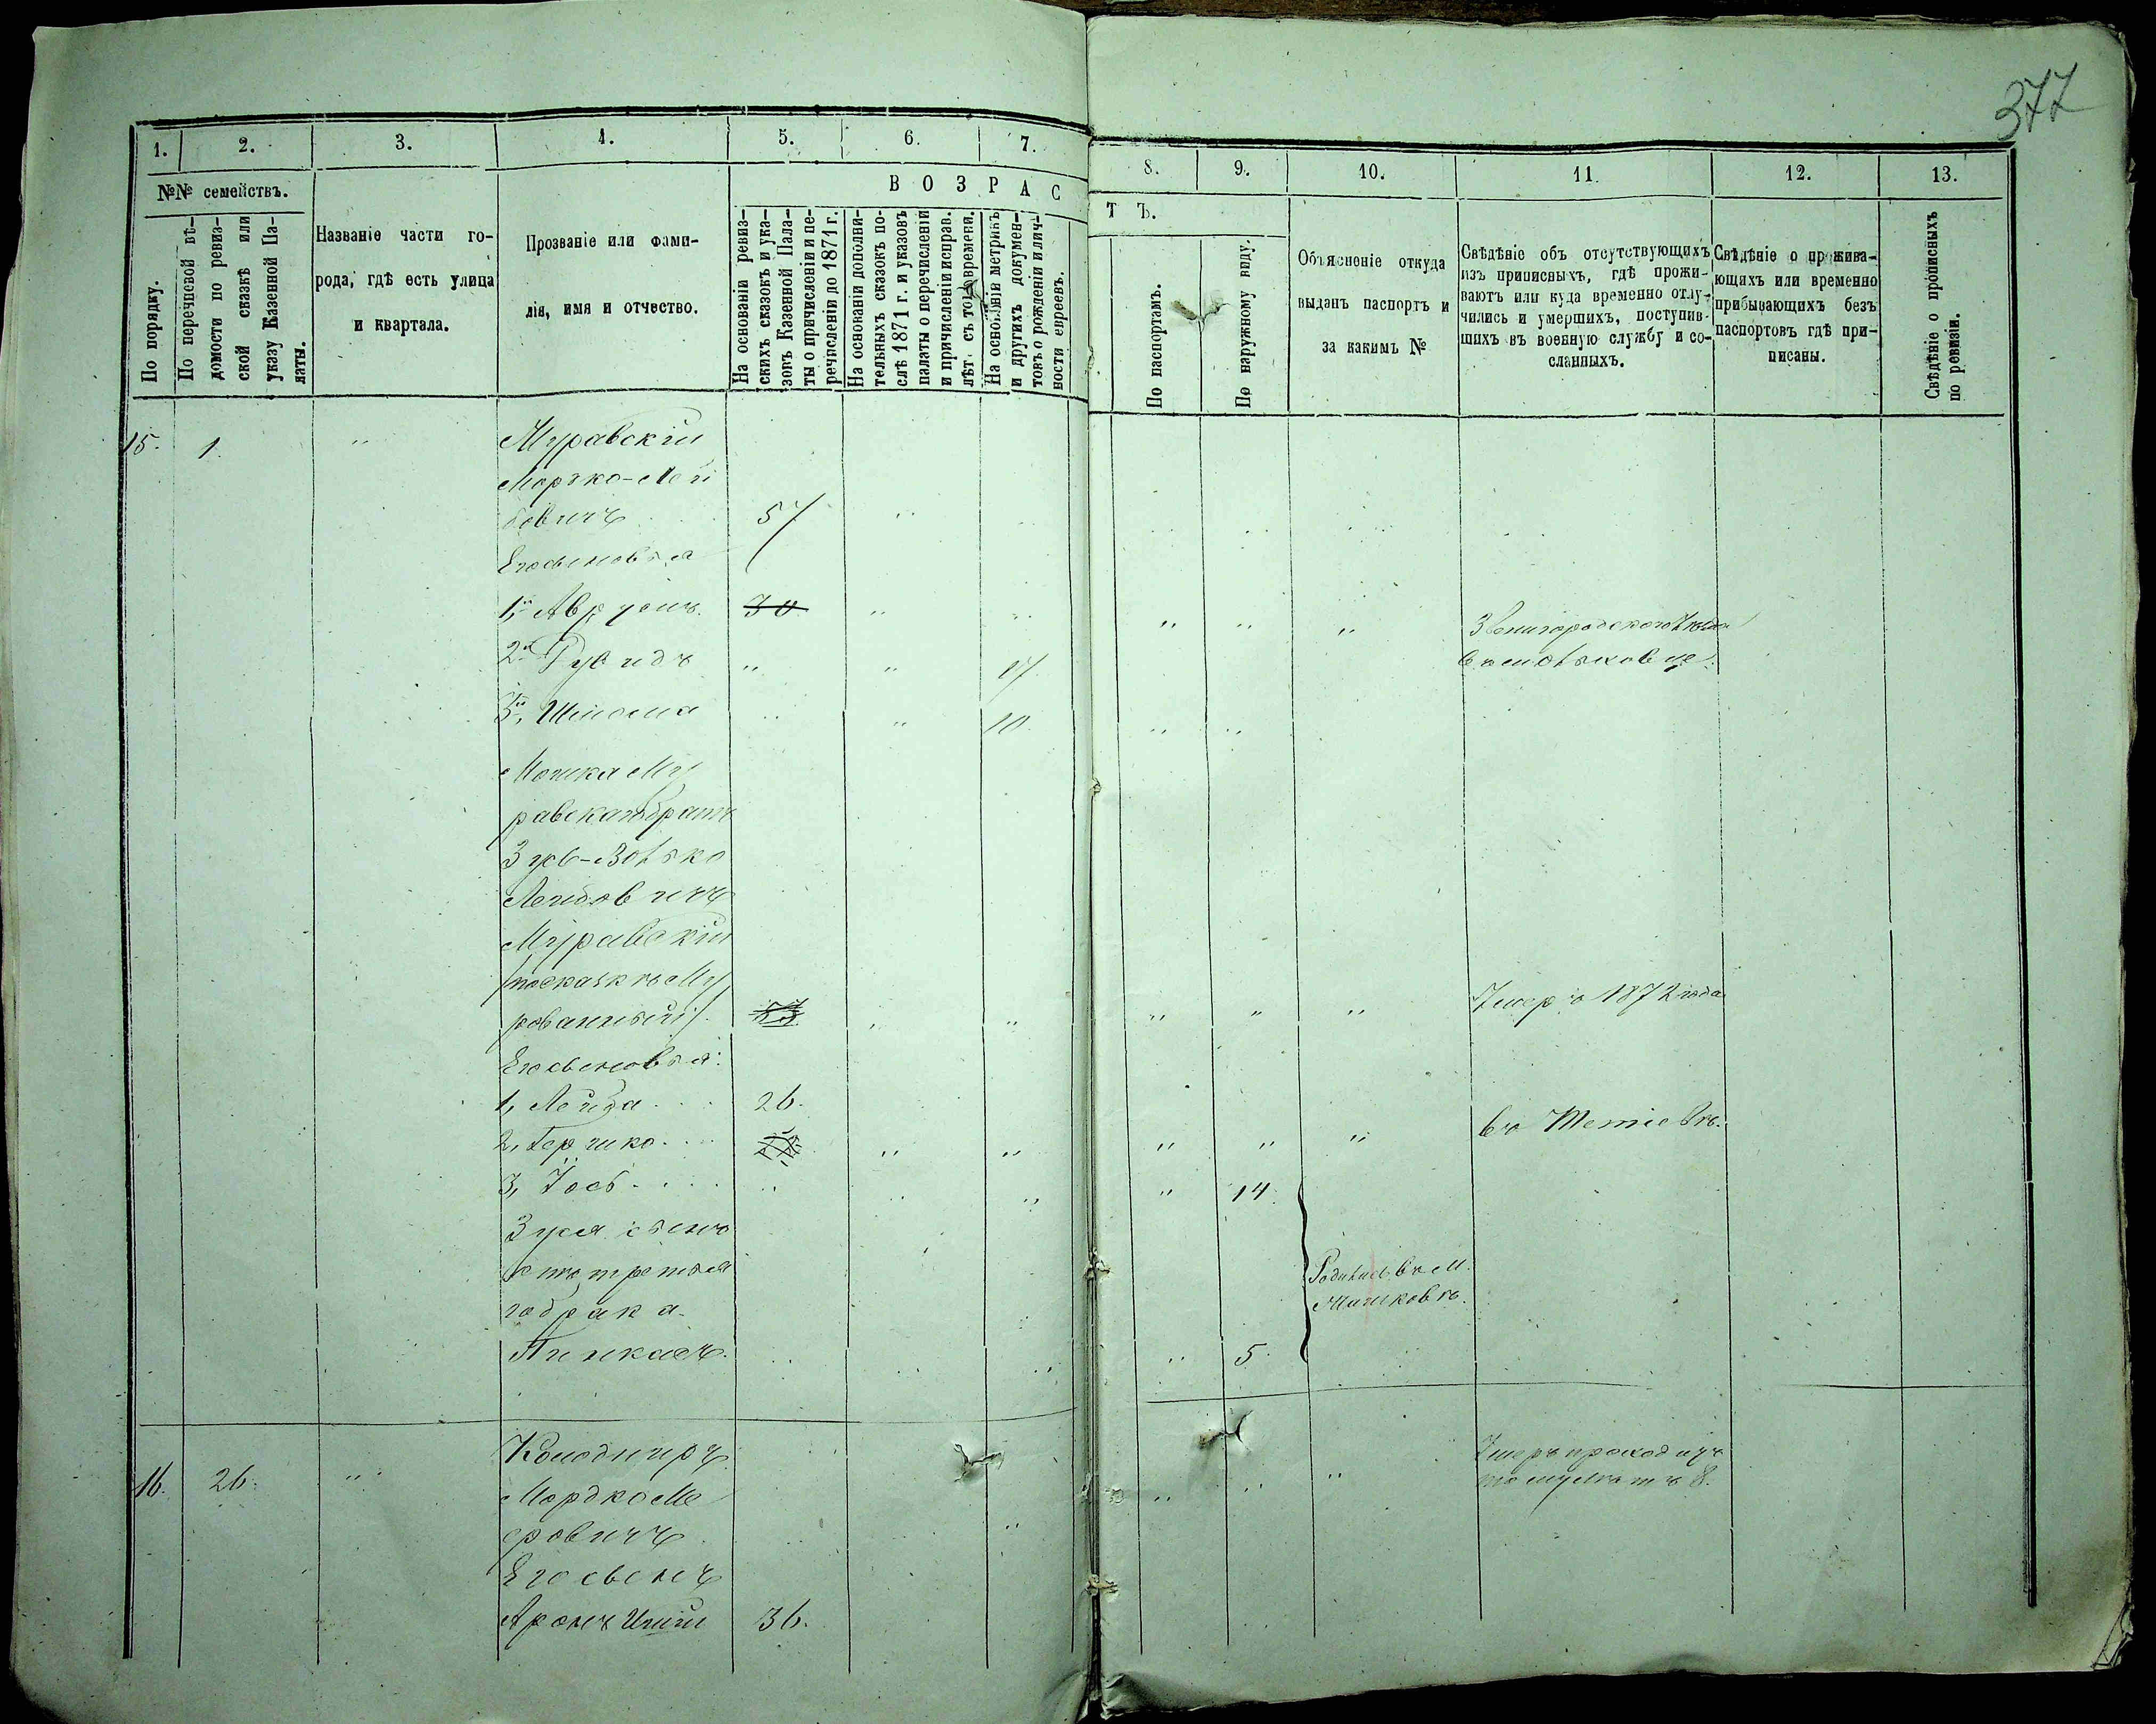 377
1. 2. 3. 4. 5. 6. 7. 8. 9. 10. 11. 12. 13.
№№ семействъ.
В О З Р А С Т Ъ.
По порядку.
По перечневой вѣ-
домости по ревиз-
ской сказкѣ или
указу Казенной Па-
латы.
Названіе части го-
рода, гдѣ есть улица
и квартала.
Прозваніе или фами-
лія, имя и отчество.
На основаніи ревиз-
скихъ сказокъ и ука-
зовъ Казенной Пала-
ты о причисленіи и пе-
речисленіи до 1871 г.
На основаніи дополни-
тельныхъ сказокъ по-
слѣ 1871 г. и указовъ
палаты о перечисленіи
и причисленіи исправ.
лѣт. съ того времени.
На основаніи метрикъ
и другихъ докумен-
товъ о рожденіи и лич-
ности евреевъ.
По паспортамъ.
По наружному виду.
Объясненіе откуда
выданъ паспортъ и
за какимъ №
Свѣдѣніе объ отсутствующихъ
изъ приписныхъ, гдѣ прожи-
ваютъ или куда временно отлу-
чились и умершихъ, поступив-
шихъ въ военную службу и со-
сланныхъ.
Свѣдѣніе о прожива-
ющихъ или временно
прибывающихъ безъ
паспортовъ гдѣ при-
писаны.
Свѣдѣніе о прописныхъ
по ревизіи.
15. 1. " Муравскій
Мошко-Лей
бовичъ 57
Его сыновья
1й Аврумъ. 30 " " " " " Звенигородскаго уѣзда
2й Рувидъ " " 17
3й, Шлома " " 10 " "
Мошка Му
равскаго братъ
Зусь-Волько
Лейбовичъ
Муравскій
/по сказкѣ Му
рованный/. " " " " " Умеръ 1872 года
Его сыновья:
1, Лейба 26.
2, Гершко " " " " " въ Тетіевѣ.
3, Іось " " " " 14
Зуся сынъ
отъ третья
го брака
Пинкасъ. " " " " 5
Родились въ М.
16. 26. " Колодниръ
Мордко Ме
еровичъ " " " "
Его сынъ
Аронъ 36.
Умеръ
тому лѣтъ 8.